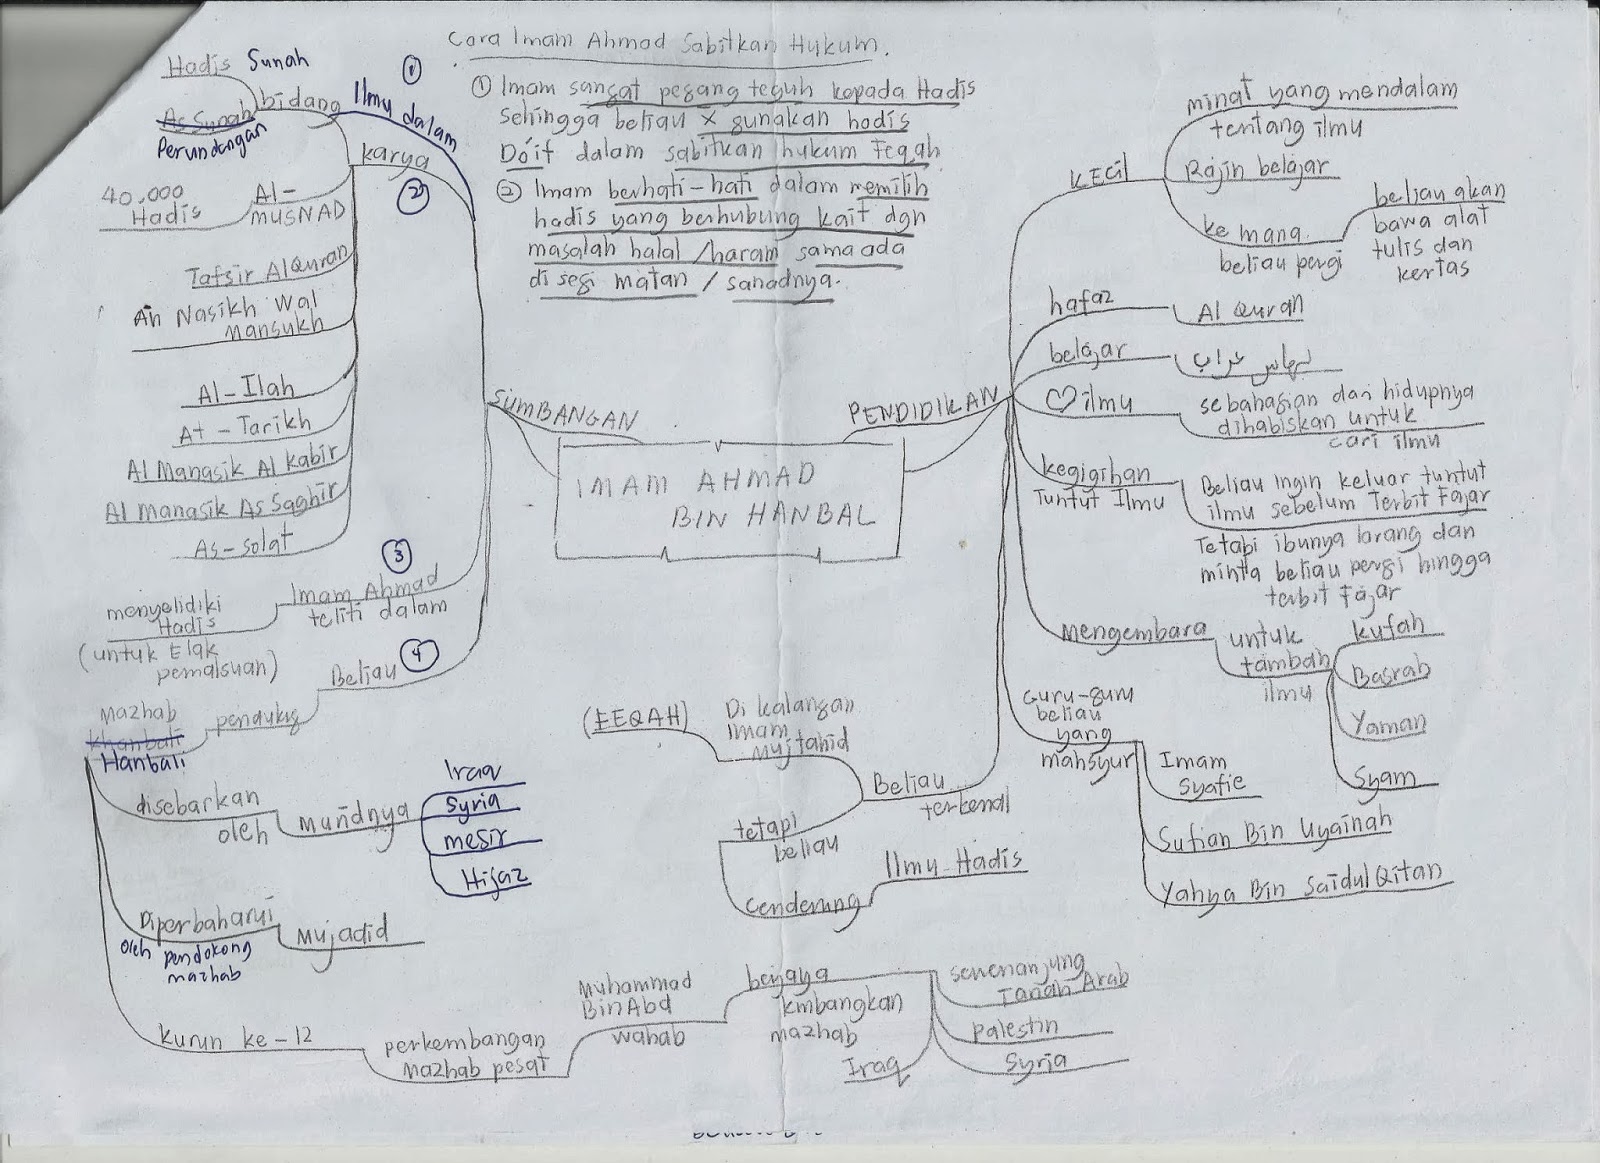 Cara Imam Ahmad Sabitkan Hukum.
① Imam sangat pegang teguh kepada Hadis
Sehingga beliau x gunakan hadis
Do'if dalam sabitkan hukum Feqah.
② Imam berhati-hati dalam memilih
hadis yang berhubung kait dgn
masalah halal/haram sama ada
di segi matan / sanadnya.
IMAM AHMAD
BIN HANBAL
SUMBANGAN
①
Ilmu dalam
bidang
Hadis Sunah
As Sunah
Perundangan
karya
②
Al-
MUSNAD
40.000
Hadis
Tafsir AlQuran
An Nasikh Wal
Mansukh
Al-Ilah
At-Tarikh
Al Manasik Al Kabir
Al Manasik As Saghir
As-solat
③
Imam Ahmad
teliti dalam
menyelidiki
Hadis
(untuk Elak
pemalsuan)
Beliau ④
pendukug
Mazhab
Khanbali
Hanbali
disebarkan
oleh
muridnya
Iraq
Syria
mesir
Hijaz
Diperbaharui
oleh pendokong
mazhab
Mujadid
Kurun ke-12
perkembangan
Mazhab pesat
Muhammad
Bin Abd
Wahab
berjaya
kmbangkan
mazhab
semenanjung
Tanah Arab
Palestin
Syria
Iraq
PENDIDIKAN
KECIL
minat yang mendalam
tentang ilmu
Rajin belajar
ke mana
beliau pergi
beliau akan
bawa alat
tulis dan
kertas
hafaz
Al Quran
belajar
♡ ilmu
sebahagian dari hidupnya
dihabiskan untuk
cari ilmu
kegigihan
Tuntut Ilmu
Beliau Ingin keluar tuntut
ilmu sebelum Terbit Fajar
Tetapi ibunya larang dan
minta beliau pergi hingga
terbit Fajar
Mengembara
untuk
tambah
ilmu
Kufah
Basrah
Yaman
Syam
Guru-guru
beliau
yang
mahsyur
Imam
Syafie
Sufian Bin Uyainah
Yahya Bin SaidulQitan
Beliau
terkenal
Di kalangan
Imam
Mujtahid
(FEQAH)
tetapi
beliau
cenderung
Ilmu Hadis